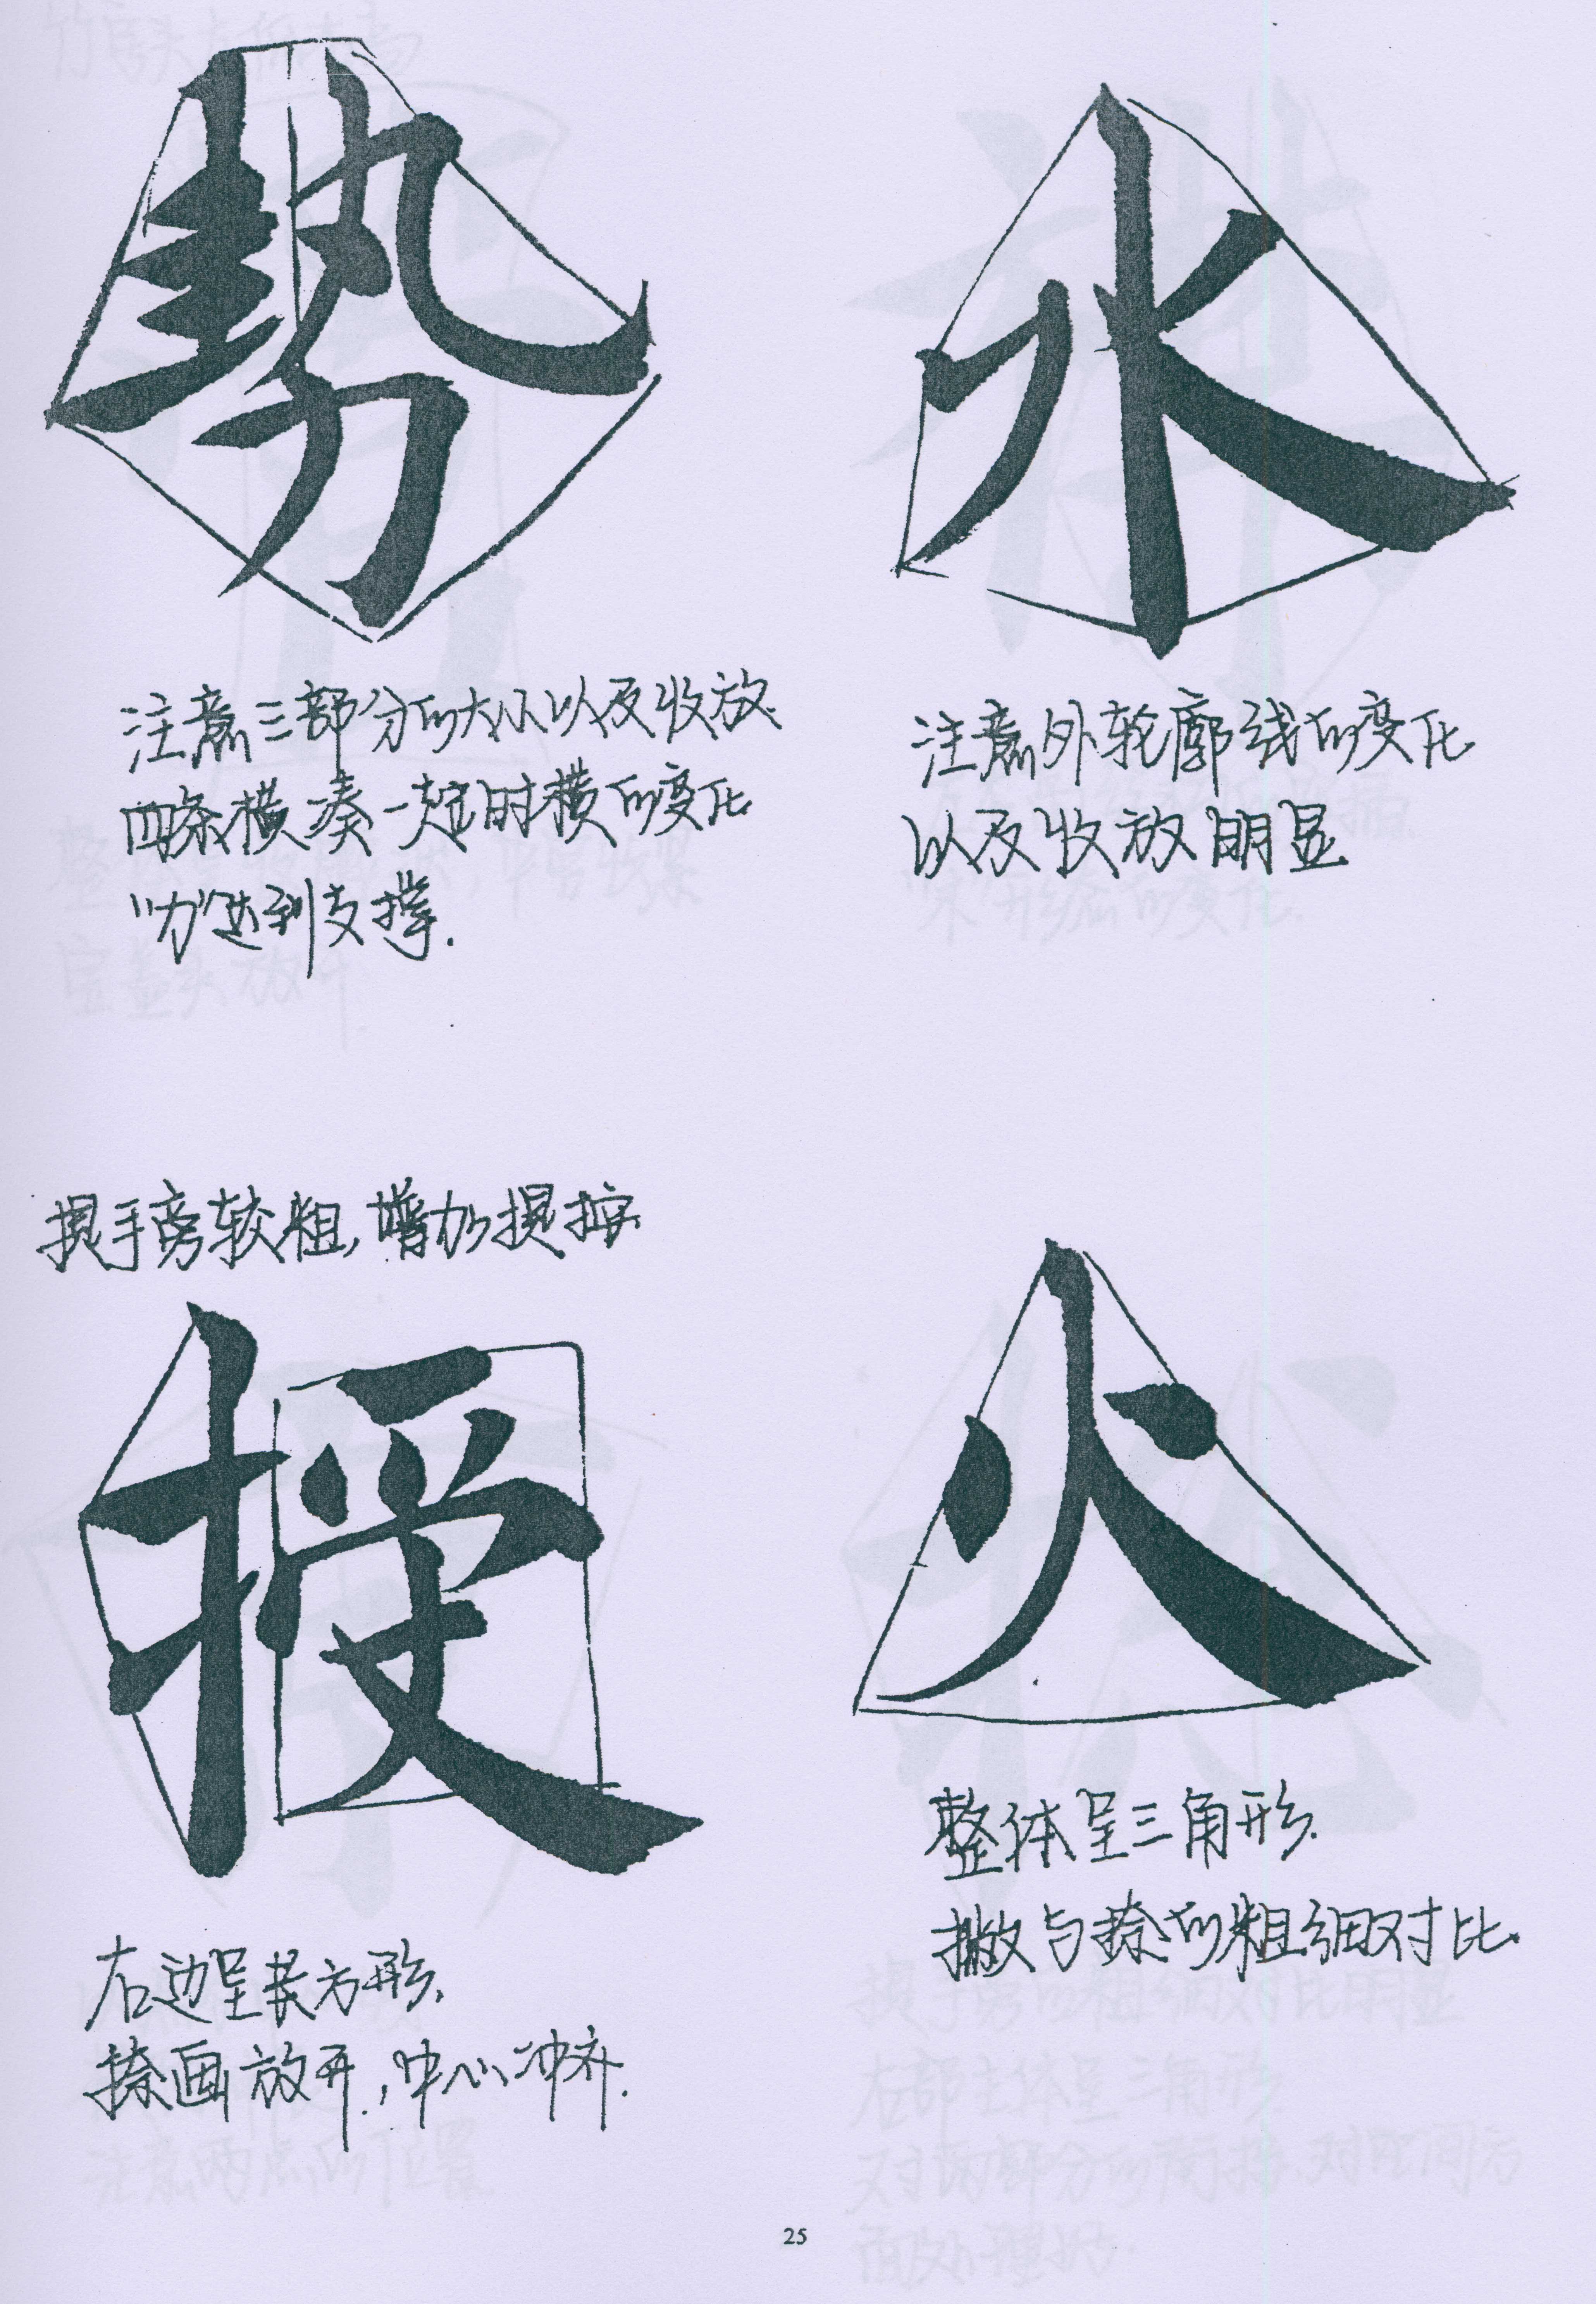 勢
注意三部分的大小以及收放
四条横凑一起时横的变化
"力"达到支撑.
水
注意外轮廓线的变化
以及收放明显
提手旁较粗,增加提按
授
右边呈长方形.
捺画放开,中心冲齐.
火
整体呈三角形.
撇与捺的粗细对比.
25